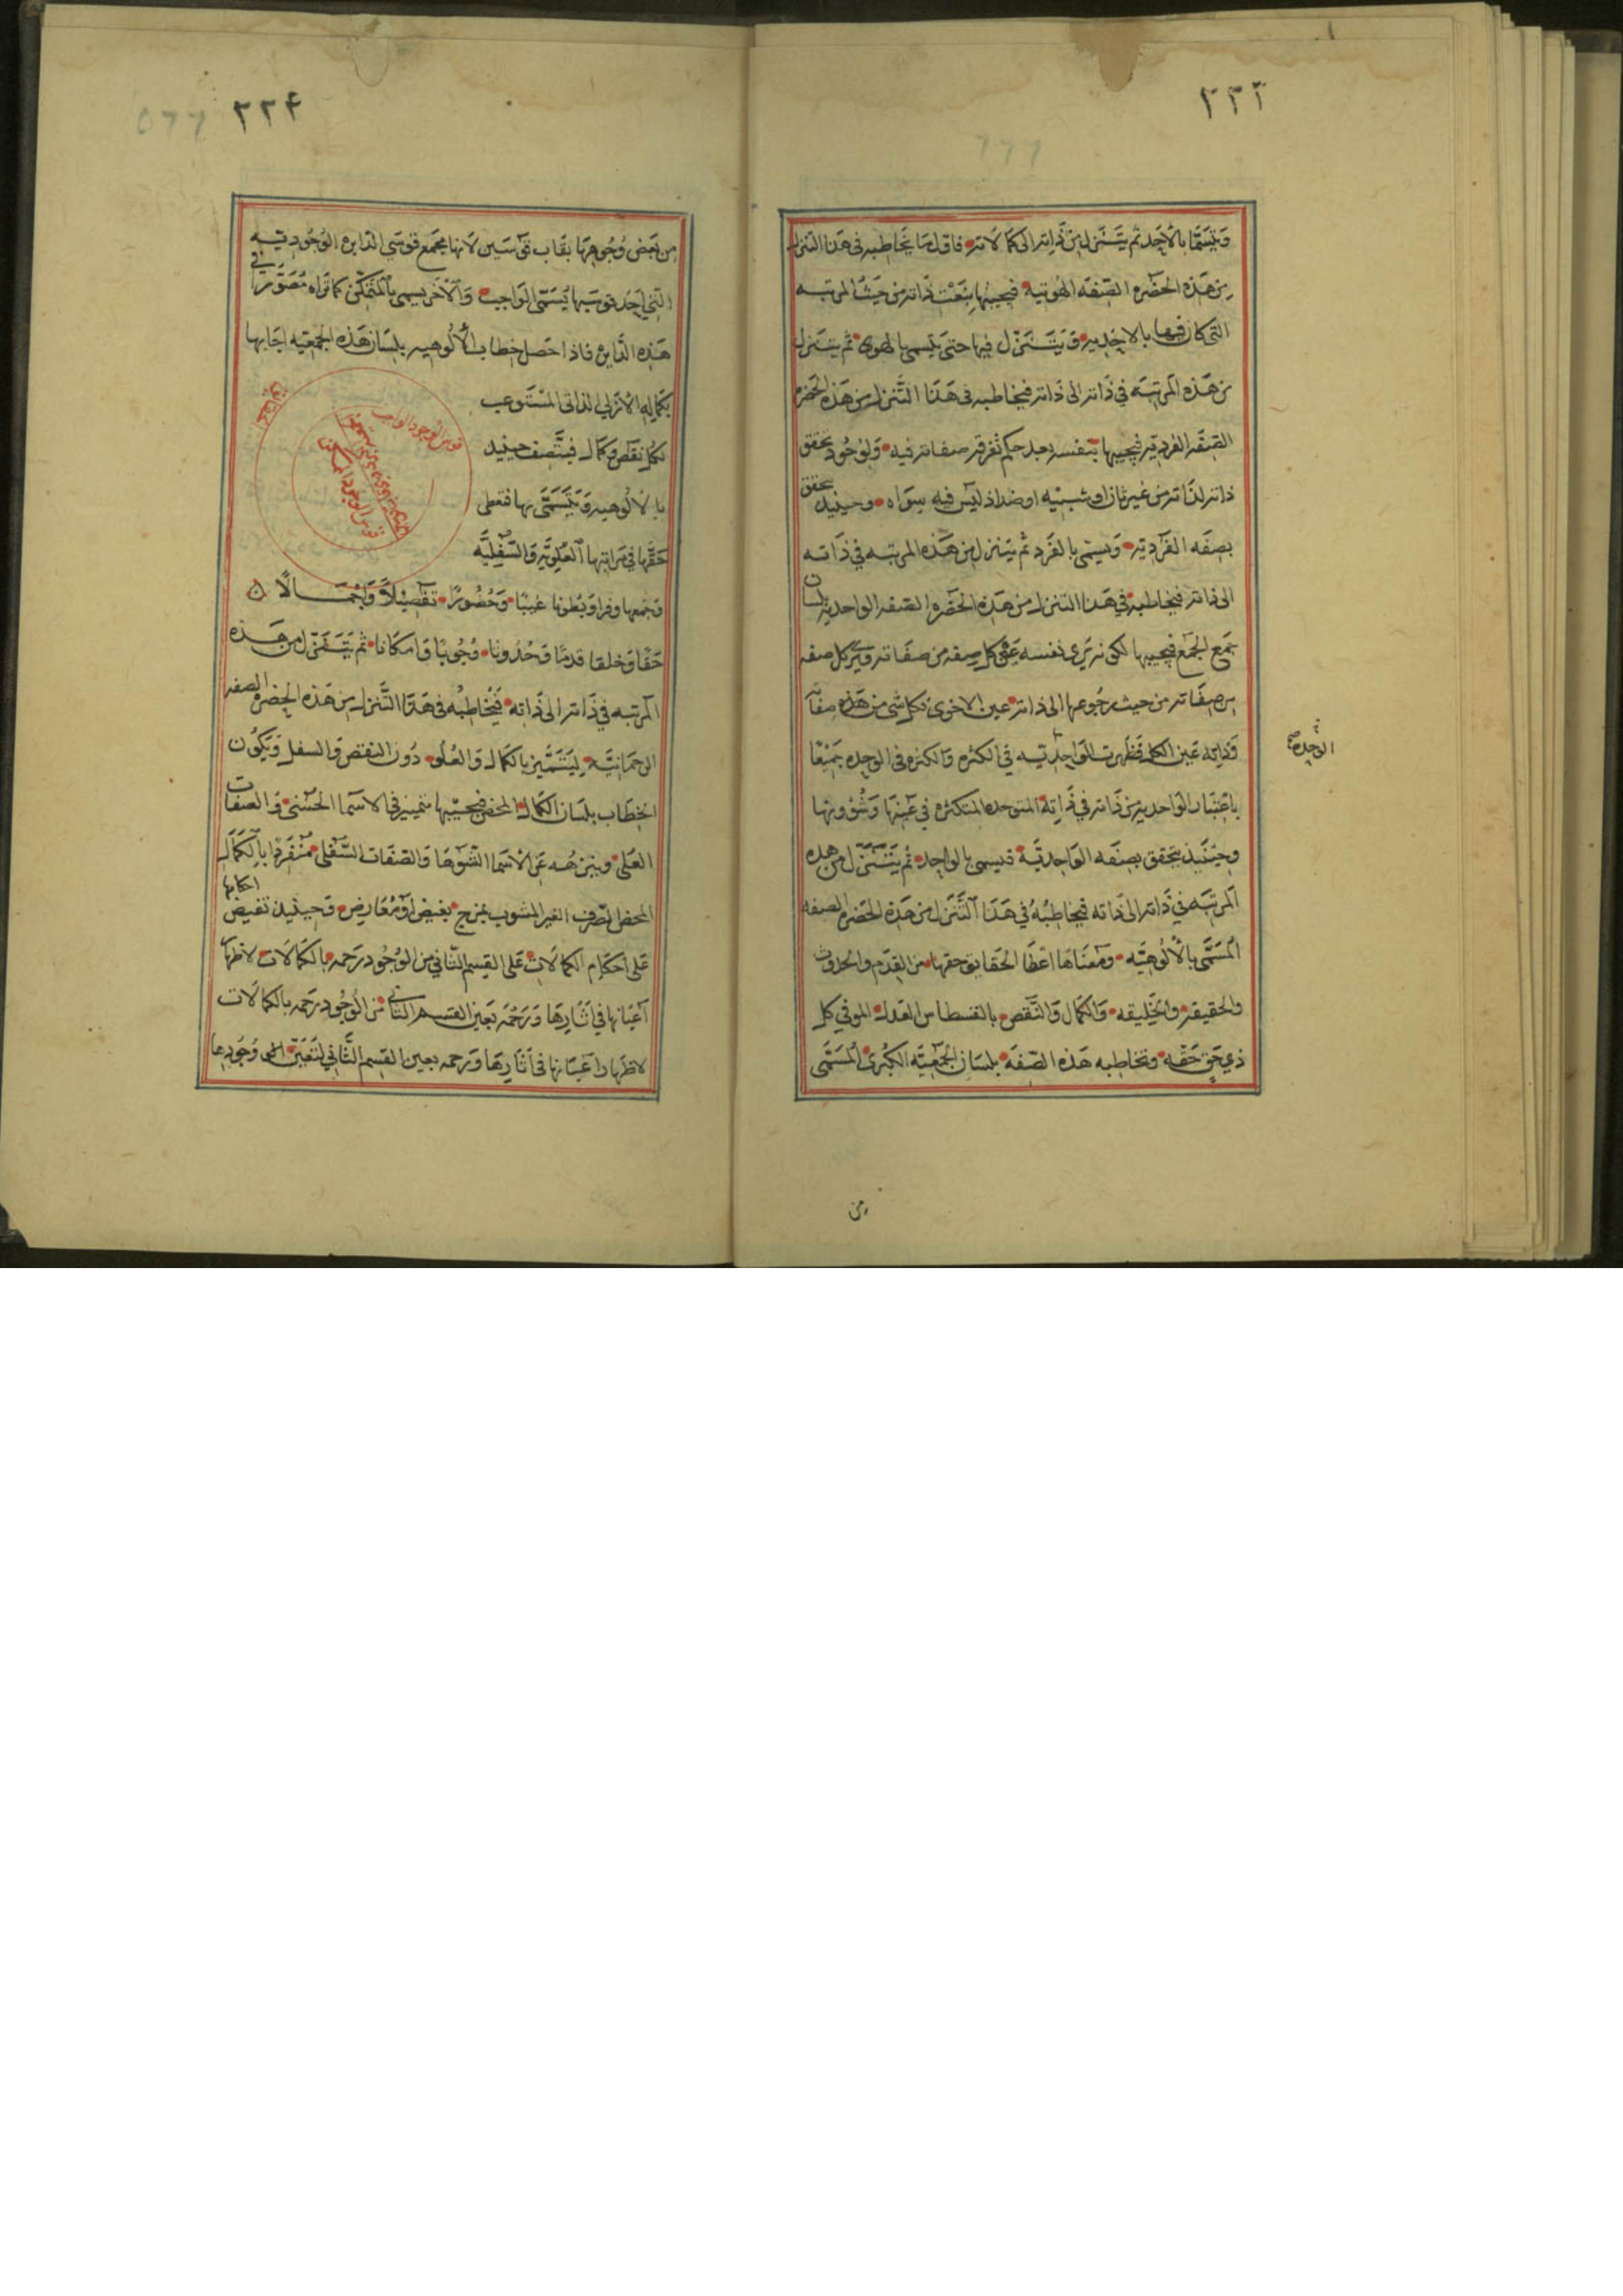 ٢٢٣
ويتسما بالاحد ثم يتنزل من ذاته الى كمالاته فاول ما يخاطبه في هذا التنزل
من هذه الحضره الصفه الهويه فيجيبها بنعت ذاته من حيث المرتبه
التي كان فيها بالاحديه ويتنزل فيها حتى يتسمى بالهوى ثم يتنزل
من هذه المرتبه في ذاته الى ذاته فيخاطبه في هذا التنزل من هذه الحضره
الصفه الفرديه فيجيبها بنفسه بعد حكم تفرقه صفاته فيه ولوجود تحقق
ذاته لذاته من غير ثان او شبيه او ضد اذ ليس فيه سواه وحينيذ يتحقق
بصفه الفرديه ويسمى بالفرد ثم يتنزل من هذه المرتبه في ذاته
الى ذاته فيخاطبه في هذا التنزل من هذه الحضره الصفه الواحديه بلسان
جمع الجمع فيجيبها لكونه يرى نفسه عين كل صفه من صفاته ويرى كل صفه
من صفاته من حيث رجوعها الى ذاته عين الاخرى فكل شي من هذه صفاته
وذاته عين الكل فظهرت الواحديه في الكثره والكثره في الوحده جميعا
الوحده
باعتبار الواحديه من ذاته في ذاته المتوحده المتكثره في عينها وشؤونها
وحينيذ يتحقق بصفه الواحديه فيسمى بالواحد ثم يتنزل من هذه
المرتبه في ذاته الى ذاته فيخاطبه في هذا التنزل من هذه الحضره الصفه
المسمى بالالوهيه ومعناها اعطا الحقايق حقها من القدم والحدوث
والحقيقه والخليقه والكمال والنقص بالقسطاس العدل الموفي كل
ذي حق حقه وتخاطبه هذه الصفه بلسان الجمعيه الكبرى المسمى
من
٢٢٤
من بعض وجوهها بقاب قوسين لانها مجمع قوسي الدايره الوجوديه
التي احد قوسيها يسمى الواجب والاخر يسمى بالممكن كما تراه مصورا في
هذه الدايره فاذا حصل خطاب الالوهيه بلسان هذه الجمعيه اجابها
بكماله الازلي الذاتي المستوعب
لكل نقص وكمال فيتصف حينيذ
بالالوهيه ويتسمى بها فتعطى
حقها في مراتبها العلويه والسفليه
قوس الوجود الواجب
قوس الوجود الممكن
وجمعها وفرا وبطونا غيبا وحضورا تفصيلا واجمالا
حقا وخلقا قدما وحدوثا وجوبا وامكانا ثم يتنزل من هذه
المرتبه في ذاته الى ذاته فيخاطبه في هذا التنزل من هذه الحضره الصفه
الرحمانيه ليتميز بالكمال والعلو دون النقص والسفل ويكون
الخطاب بلسان الكمال المحض فيجيبها بتميزه في الاسما الحسنى والصفات
العلى وينزهه عن الاسما الشوها والصفات السفلى منفردا بالكمال
المحض الصرف الغير المشوب بمزج بغيض او معارض وحينيذ تفيض احكامها
على احكام الكمالات على القسم الثاني من الوجود رحمه بالكمالات لاظهار
اعيانها في اثارها ورحمه بعين القسم الثاني من الوجود رحمه بالكمالات
لاظهار اعيانها في اثارها ورحمه بعين القسم الثاني لتعين وجودها